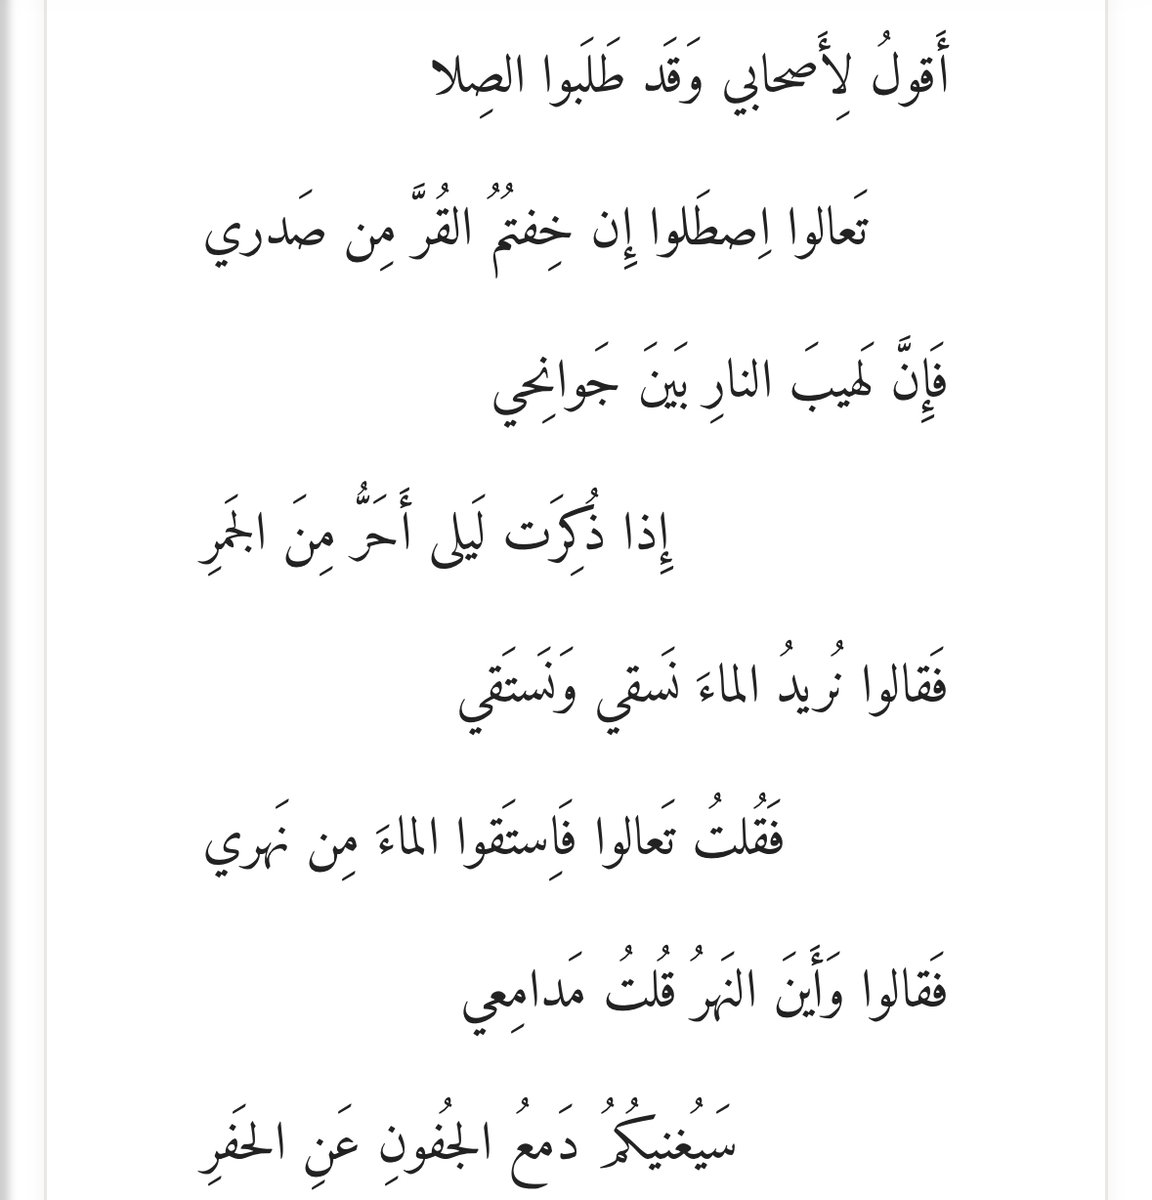 أَقولُ لِأَصحابي وَقَد طَلَبوا الصِلا
تَعالوا اِصطَلوا إِن خِفتُمُ القُرَّ مِن صَدري
فَإِنَّ لَهيبَ النارِ بَينَ جَوانِحي
إِذا ذُكِرَت لَيلى أَحَرُّ مِنَ الجَمرِ
فَقالوا نُريدُ الماءَ نَسقي وَنَستَقي
فَقُلتُ تَعالوا فَاِستَقوا الماءَ مِن نَهري
فَقالوا وَأَينَ النَهرُ قُلتُ مَدامِعي
سَيُغنيكُمُ دَمعُ الجُفونِ عَنِ الحَفرِ